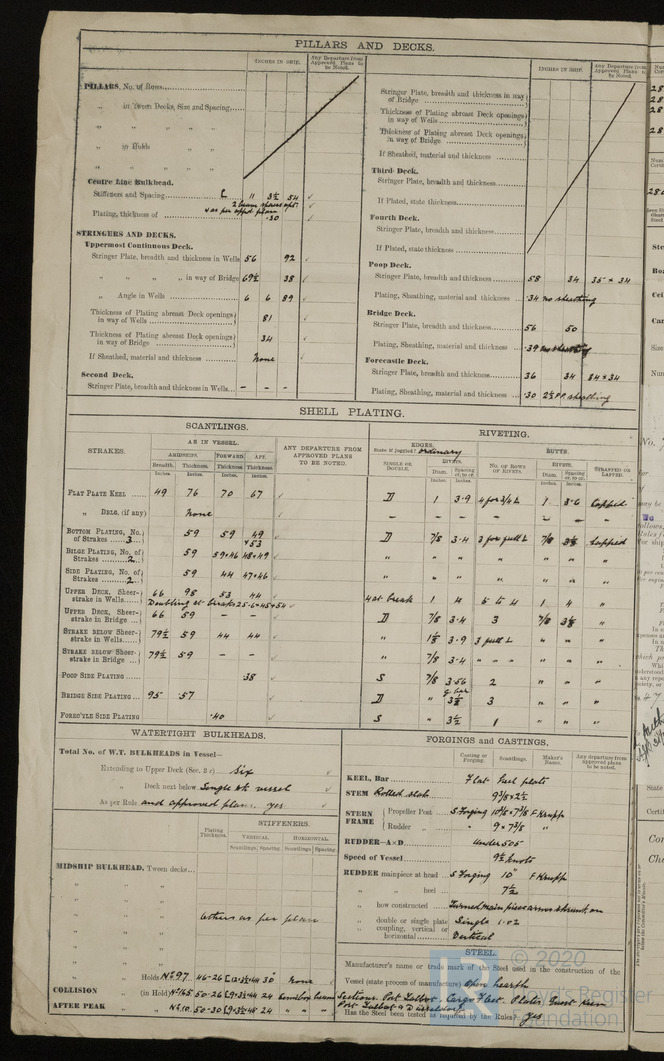 PILLARS AND DECKS.
INCHES IN SHIP.
Any Departure from Approved Plans to be Noted.
PILLARS, No. of Rows
„ in 'Tween Decks, Size and Spacing
„ in Holds
Centre Line Bulkhead.
Stiffeners and Spacing [ 11 3½ 54
2 beam spaces apt.
Plating, thickness of & as per appd plan .30
STRINGERS AND DECKS.
Uppermost Continuous Deck.
Stringer Plate, breadth and thickness in Wells 56 92
„ „ „ „ in way of Bridge 69½ 38
„ Angle in Wells 6 6 89
Thickness of Plating abreast Deck openings in way of Wells 81
Thickness of Plating abreast Deck openings in way of Bridge 34
If Sheathed, material and thickness None
Second Deck.
Stringer Plate, breadth and thickness in Wells - - -
INCHES IN SHIP.
Any Departure from Approved Plans to be Noted.
Stringer Plate, breadth and thickness in way of Bridge
Thickness of Plating abreast Deck openings in way of Wells
Thickness of Plating abreast Deck openings in way of Bridge
If Sheathed, material and thickness
Third Deck.
Stringer Plate, breadth and thickness
If Plated, state thickness
Fourth Deck.
Stringer Plate, breadth and thickness
If Plated, state thickness
Poop Deck.
Stringer Plate, breadth and thickness 58 34 35 × 34
Plating, Sheathing, material and thickness .34 no sheathing
Bridge Deck.
Stringer Plate, breadth and thickness 56 50
Plating, Sheathing, material and thickness .39 no sheathing
Forecastle Deck.
Stringer Plate, breadth and thickness 36 34 84 × 34
Plating, Sheathing, material and thickness .30 2½ PP sheathing
SHELL PLATING.
SCANTLINGS.
RIVETING.
STRAKES.
AS IN VESSEL.
AMIDSHIPS. FORWARD. AFT.
Breadth. Thickness. Thickness. Thickness.
Inches. Inches. Inches. Inches.
ANY DEPARTURE FROM APPROVED PLANS TO BE NOTED.
EDGES.
State if joggled? ordinary
SINGLE OR DOUBLE.
RIVETS.
Diam. Spacing cr. to cr.
Inches. Inches.
BUTTS.
NO. OF ROWS OF RIVETS.
RIVETS.
Diam. Spacing cr. to cr.
Inches. Inches.
STRAPPED OR LAPPED.
FLAT PLATE KEEL 49 76 70 67 D 1 3.9 4 for 3/4 L 1 3.6 Lapped
„ DBLG. (if any) None - - - - - - -
BOTTOM PLATING, No. of Strakes 3 59 59 49 × 53 D 7/8 3.4 3 for full L 7/8 3⅛ Lapped
BILGE PLATING, No. of Strakes 2 59 59×46 48×49 „ „ „ „ „ „ „
SIDE PLATING, No. of Strakes 2 59 44 47×46 „ „ „ „ „ „ „
UPPER DECK, Sheerstrake in Wells 66 98 53 44 4 at break 1 4 5 to 4 1 4 „
Doubling at breaks
UPPER DECK, Sheerstrake in Bridge 66 59 - - D 7/8 3.4 3 7/8 3⅛ „
STRAKE BELOW Sheerstrake in Wells 79½ 59 44 44 „ 3.9 „ „ „
STRAKE BELOW Sheerstrake in Bridge 79½ 59 - - „ 7/8 3.4 „ „ „ „ „ „
POOP SIDE PLATING 38 S 7/8 3.56 2 „ „ „
BRIDGE SIDE PLATING 95 .57 D „ 3 „ „ „
FORE'C'LE SIDE PLATING .40 S „ 3½ 1 „ „ „
WATERTIGHT BULKHEADS.
Total No. of W.T. BULKHEADS in Vessel—
Extending to Upper Deck (Sec. 3 c) Six
„ Deck next below Single dk vessel
As per Rule and approved plan. yes
Plating Thickness.
STIFFENERS.
VERTICAL. HORIZONTAL.
Scantlings. Spacing. Scantlings. Spacing.
MIDSHIP BULKHEAD, 'Tween decks
Others as per plan
„ „ Holds No 97 46-26 30" None
COLLISION „ (in Hold) No 165 50-26 24
AFTER PEAK „ „ No 10 50-30 24 „ „
FORGINGS and CASTINGS.
Casting or Forging. Scantlings. Maker's Name. Any departure from approved plans to be noted.
KEEL, Bar Flat keel plate
STEM Rolled slab 9⅜ × 2½
STERN FRAME
Propeller Post S Forging 10⅜ × 7⅜ F Krupp
Rudder „ „ 9 × 7⅜ „
RUDDER—A×D Under 505
Speed of Vessel 9½ knots
RUDDER mainpiece at head S Forging 10" F Krupp
„ „ heel 7½
„ how constructed Turned main piece arms shrunk on
„ double or single plate Single 1.02
„ coupling, vertical or horizontal Vertical
STEEL.
Manufacturer's name or trade mark of the Steel used in the construction of the
Vessel (state process of manufacture) Open hearth
Sections. Port Talbot, Cargo Fleet. Plates,
Port Talbot & Dusseldorf
Has the Steel been tested as required by the Rules? yes
© 2020
Lloyd's Register
Foundation